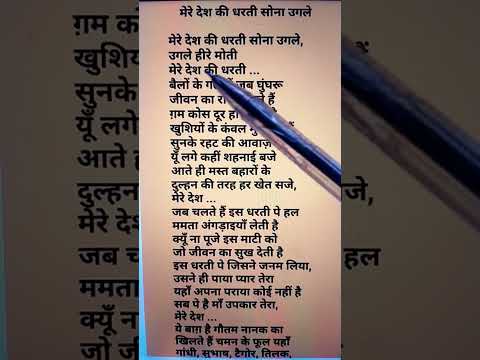 मेरे देश की धरती सोना उगले
मेरे देश की धरती सोना उगले,
उगले हीरे मोती
मेरे देश की धरती ...
बैलों के जब घुंघरू
जीवन का हैं
ग़म कोस दूर
खुशियों के कंवल
सुनके रहट की आवाज़
यूँ लगे कहीं शहनाई बजे
आते ही मस्त बहारों के
दुल्हन की तरह हर खेत सजे,
मेरे देश ...
जब चलते हैं इस धरती पे हल
ममता अंगड़ाइयाँ लेती है
क्यूँ ना पूजे इस माटी को
जो जीवन का सुख देती है
इस धरती पे जिसने जनम लिया,
उसने ही पाया प्यार तेरा
यहाँ अपना पराया कोई नहीं है
सब पे है माँ उपकार तेरा,
मेरे देश ...
ये बाग़ है गौतम नानक का
खिलते हैं चमन के फूल यहाँ
गांधी, सुभाष, टैगोर, तिलक,